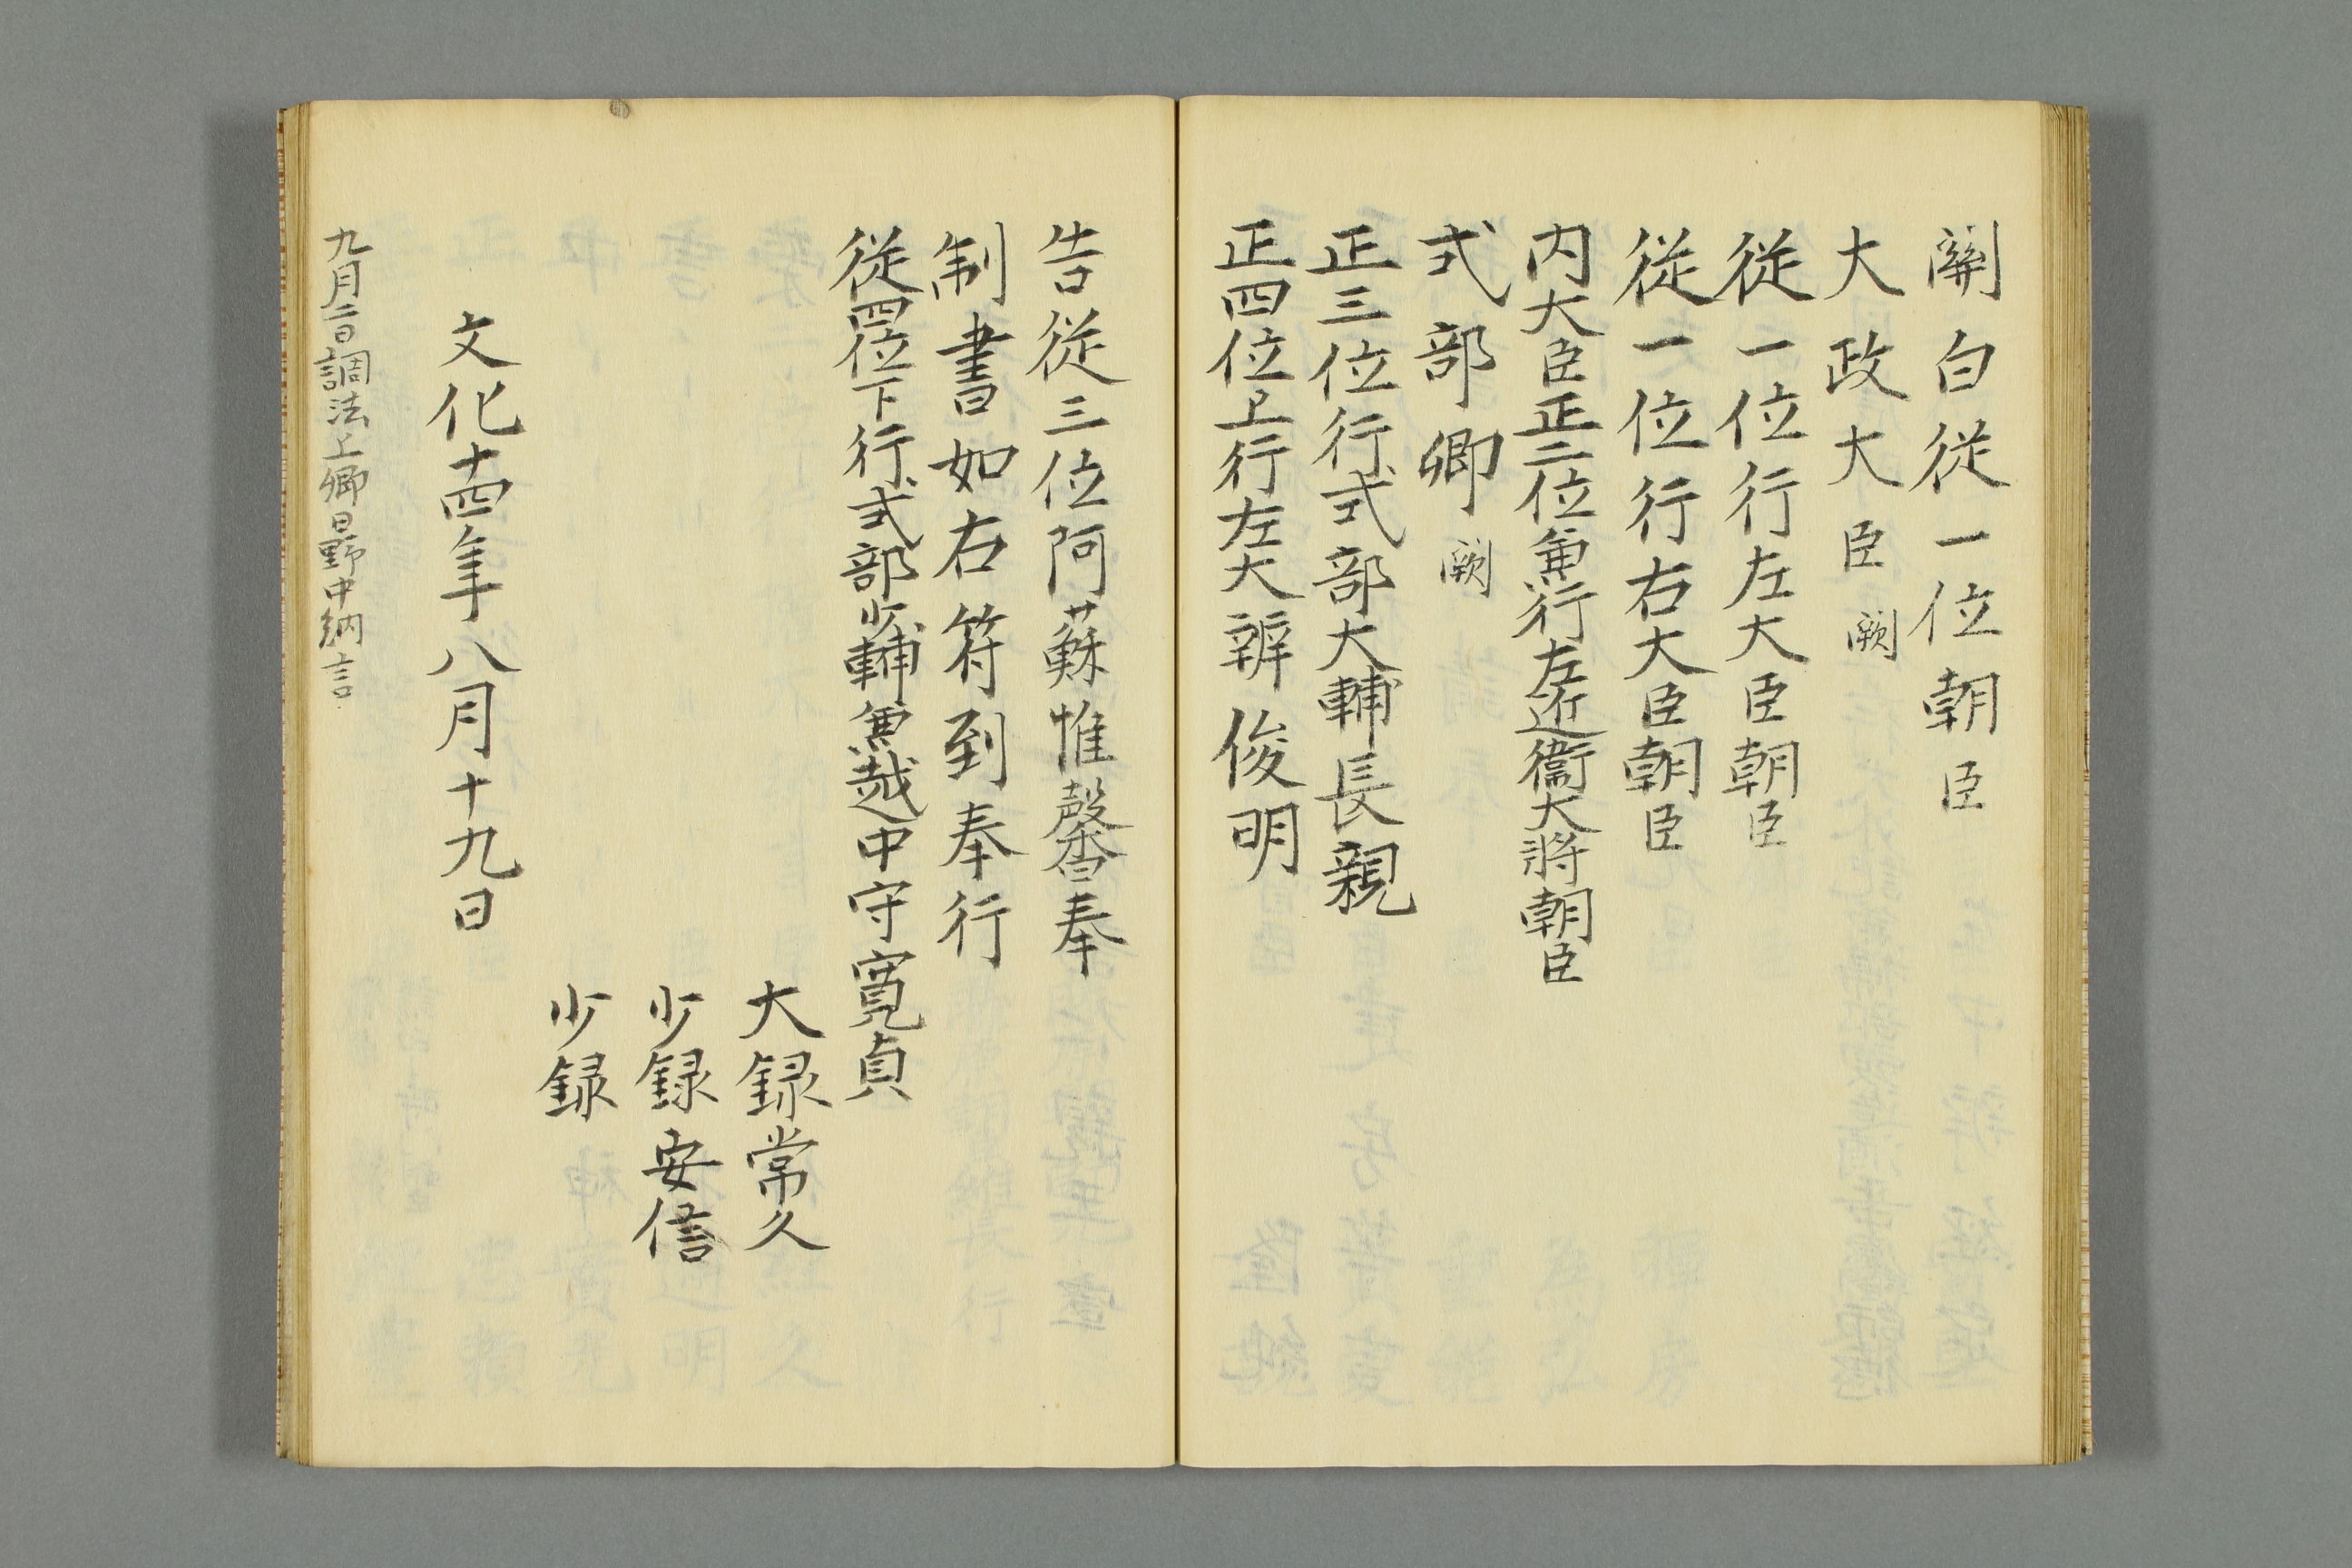 關白從一位朝臣
大政大臣闕
從一位行左大臣朝臣
從一位行右大臣朝臣
内大臣正二位兼行左近衞大將朝臣
式部卿闕
正三位行式部大輔長親
正四位上行左大辨俊明
告從三位阿蘇惟馨奉
制書如右符到奉行
從四位下行式部少輔兼越中守寬貞
大録常久
少録安信
少録
文化十四年八月十九日
九月二日調法上卿日野中納言